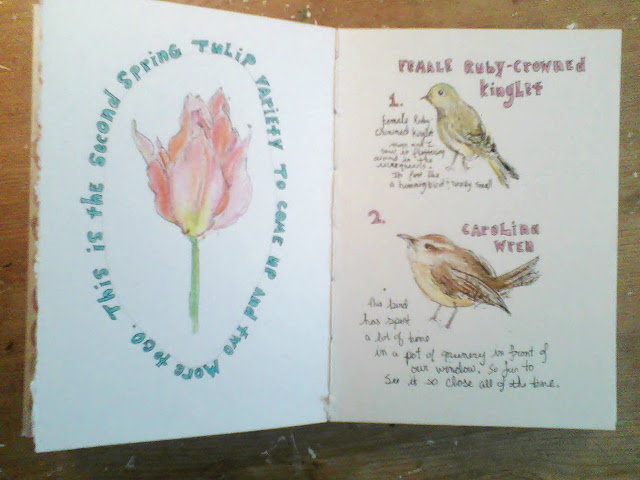 This is the Second Spring Tulip Variety to come up and two More to GO.
Female Ruby-Crowned
Kinglet
1.
female Ruby
Crowned Kinglet
saw it fluttering
around in the
In fact like
a hummingbird + really small
2.
Carolina
Wren
This bird
has spent
a lot of time
in a pot of greenery in front of
our window. So fun to
see it so close all of the time.